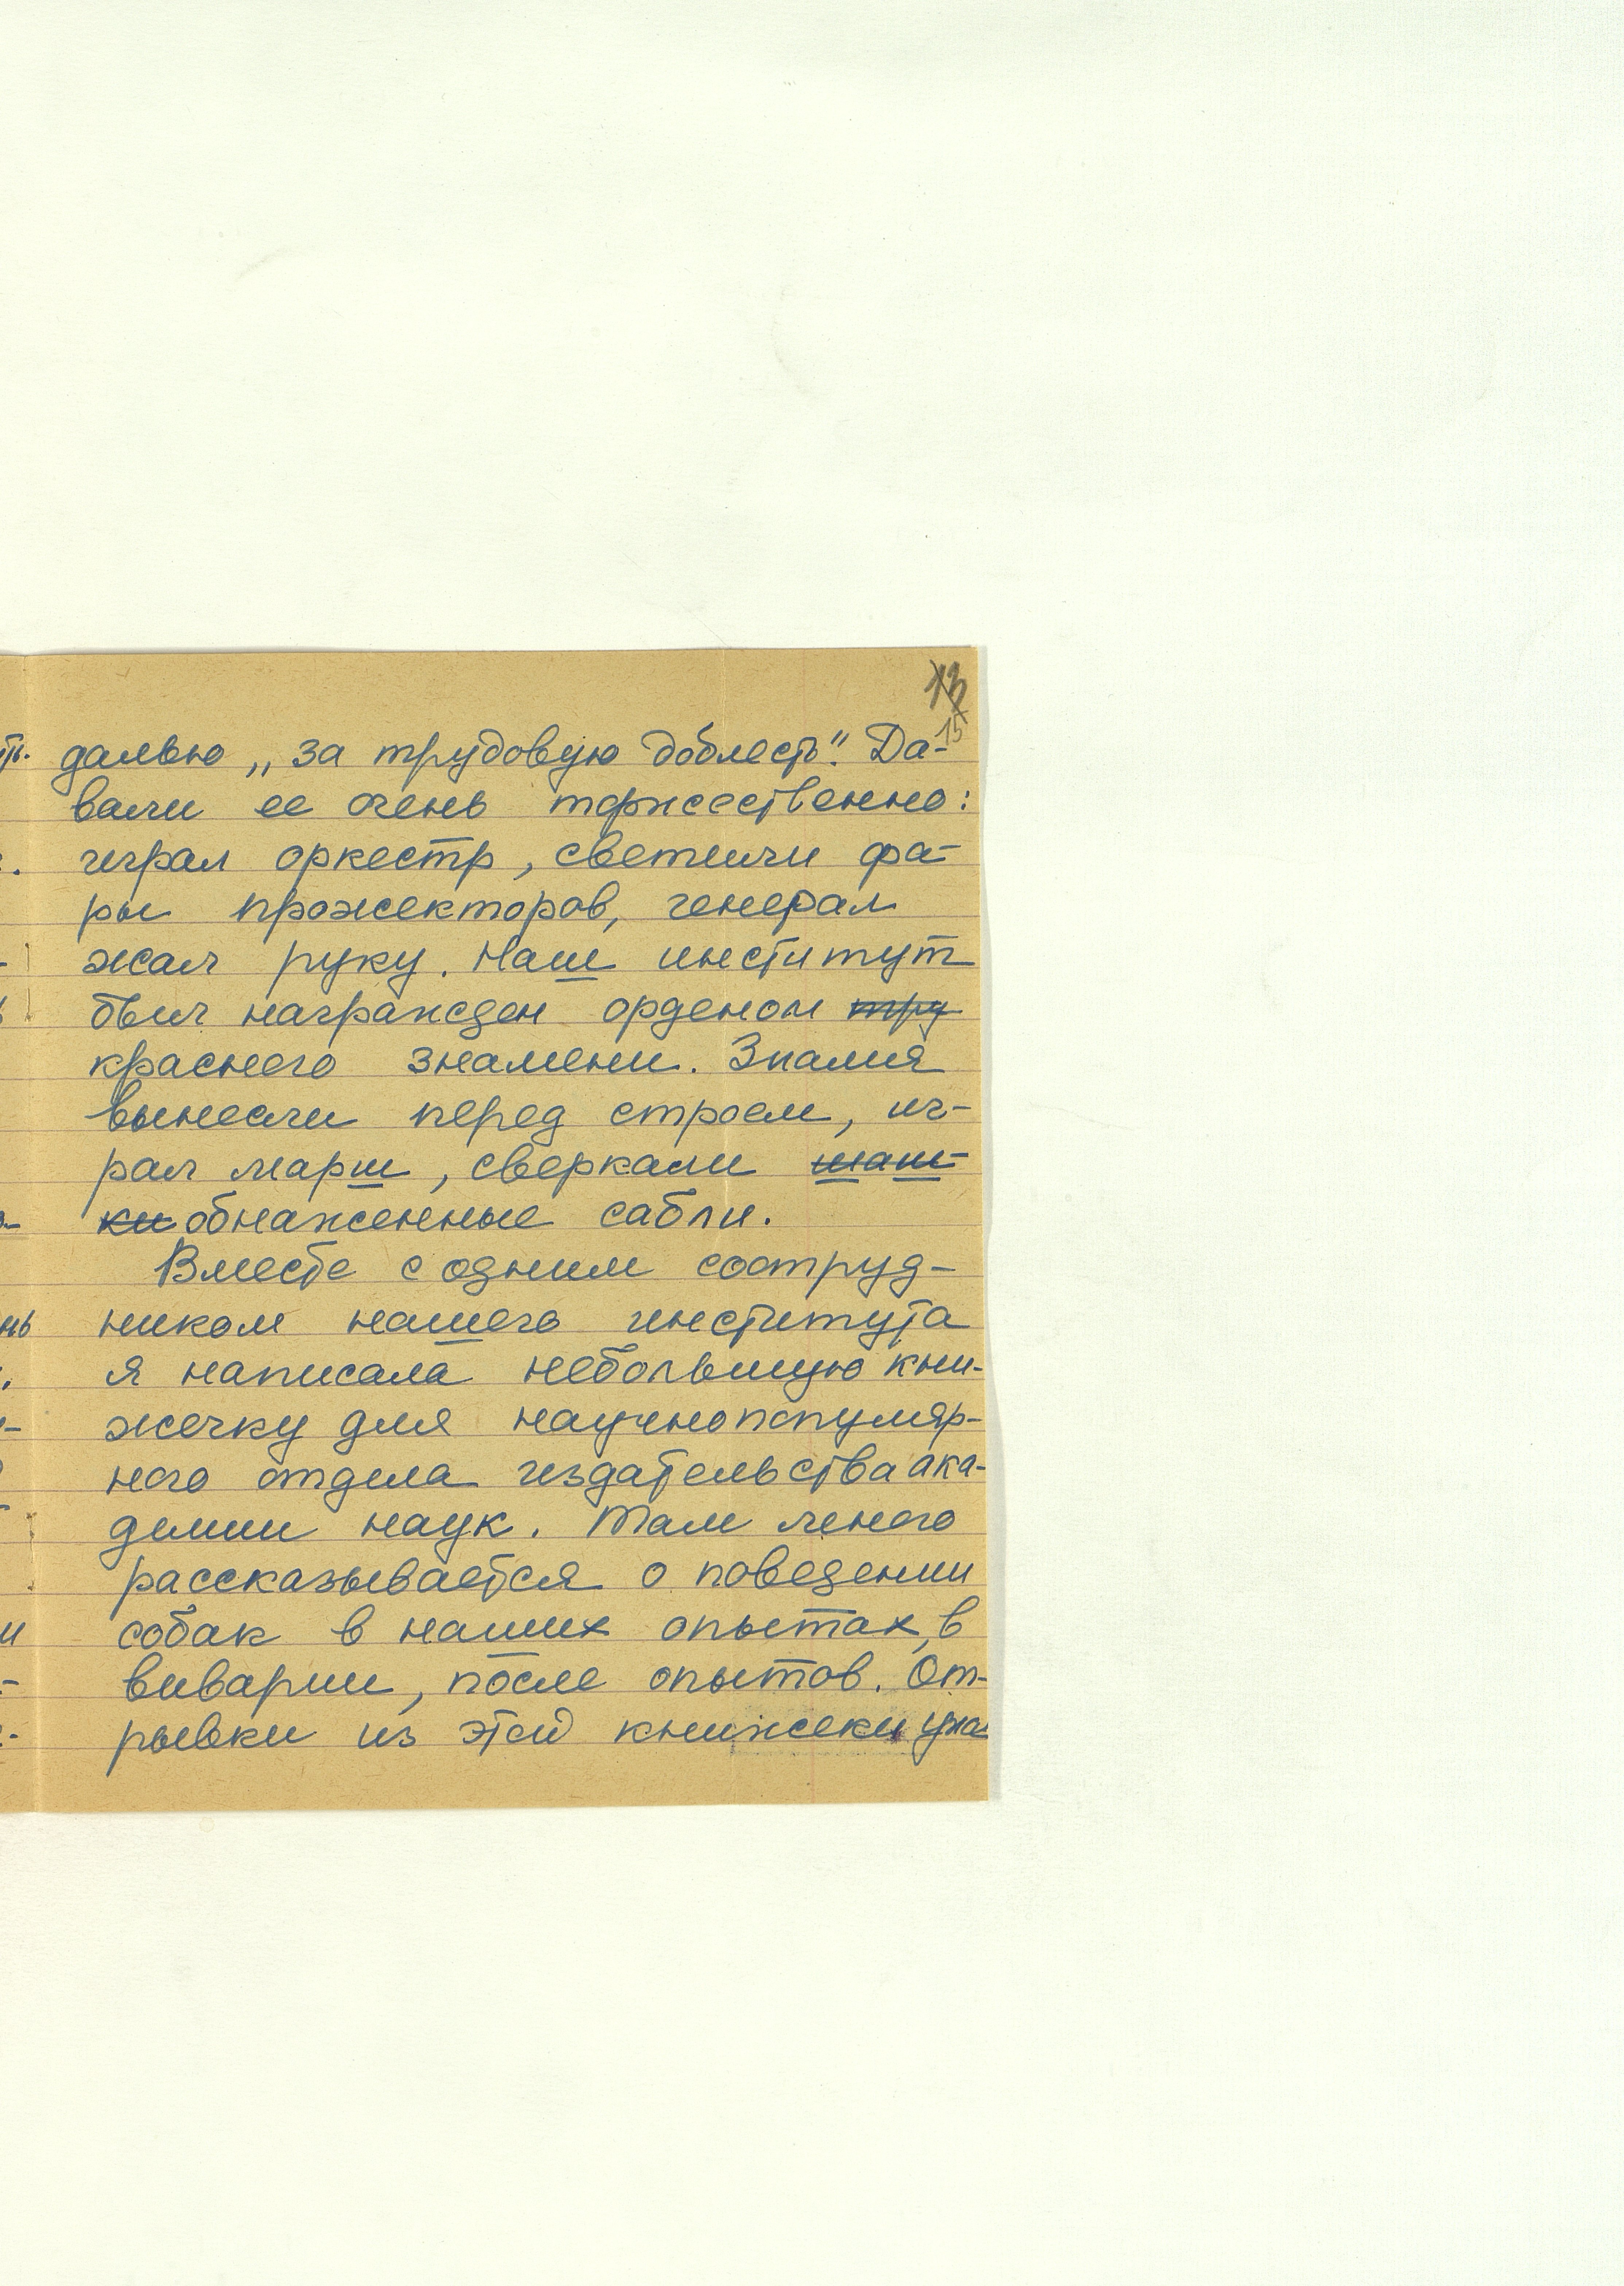 15
далью „за трудовую доблесть“. Да-
вали ее очень торжественно:
играл оркестр, светили фа-
ры прожекторов, генерал
жал руку. Наш институт
был награжден орденом тру
красного знамени. Знамя
вынесли перед строем, иг-
рал марш, сверкали шаш-
ки обнаженные сабли.
Вместе с одним сотруд-
ником нашего института
я написала небольшую кни-
жечку для научнопопуляр-
ного отдела издательства ака-
демии наук. Там много
рассказывается о поведении
собак в наших опытах, в
виварии, после опытов. От-
рывки из этой книжеки уже